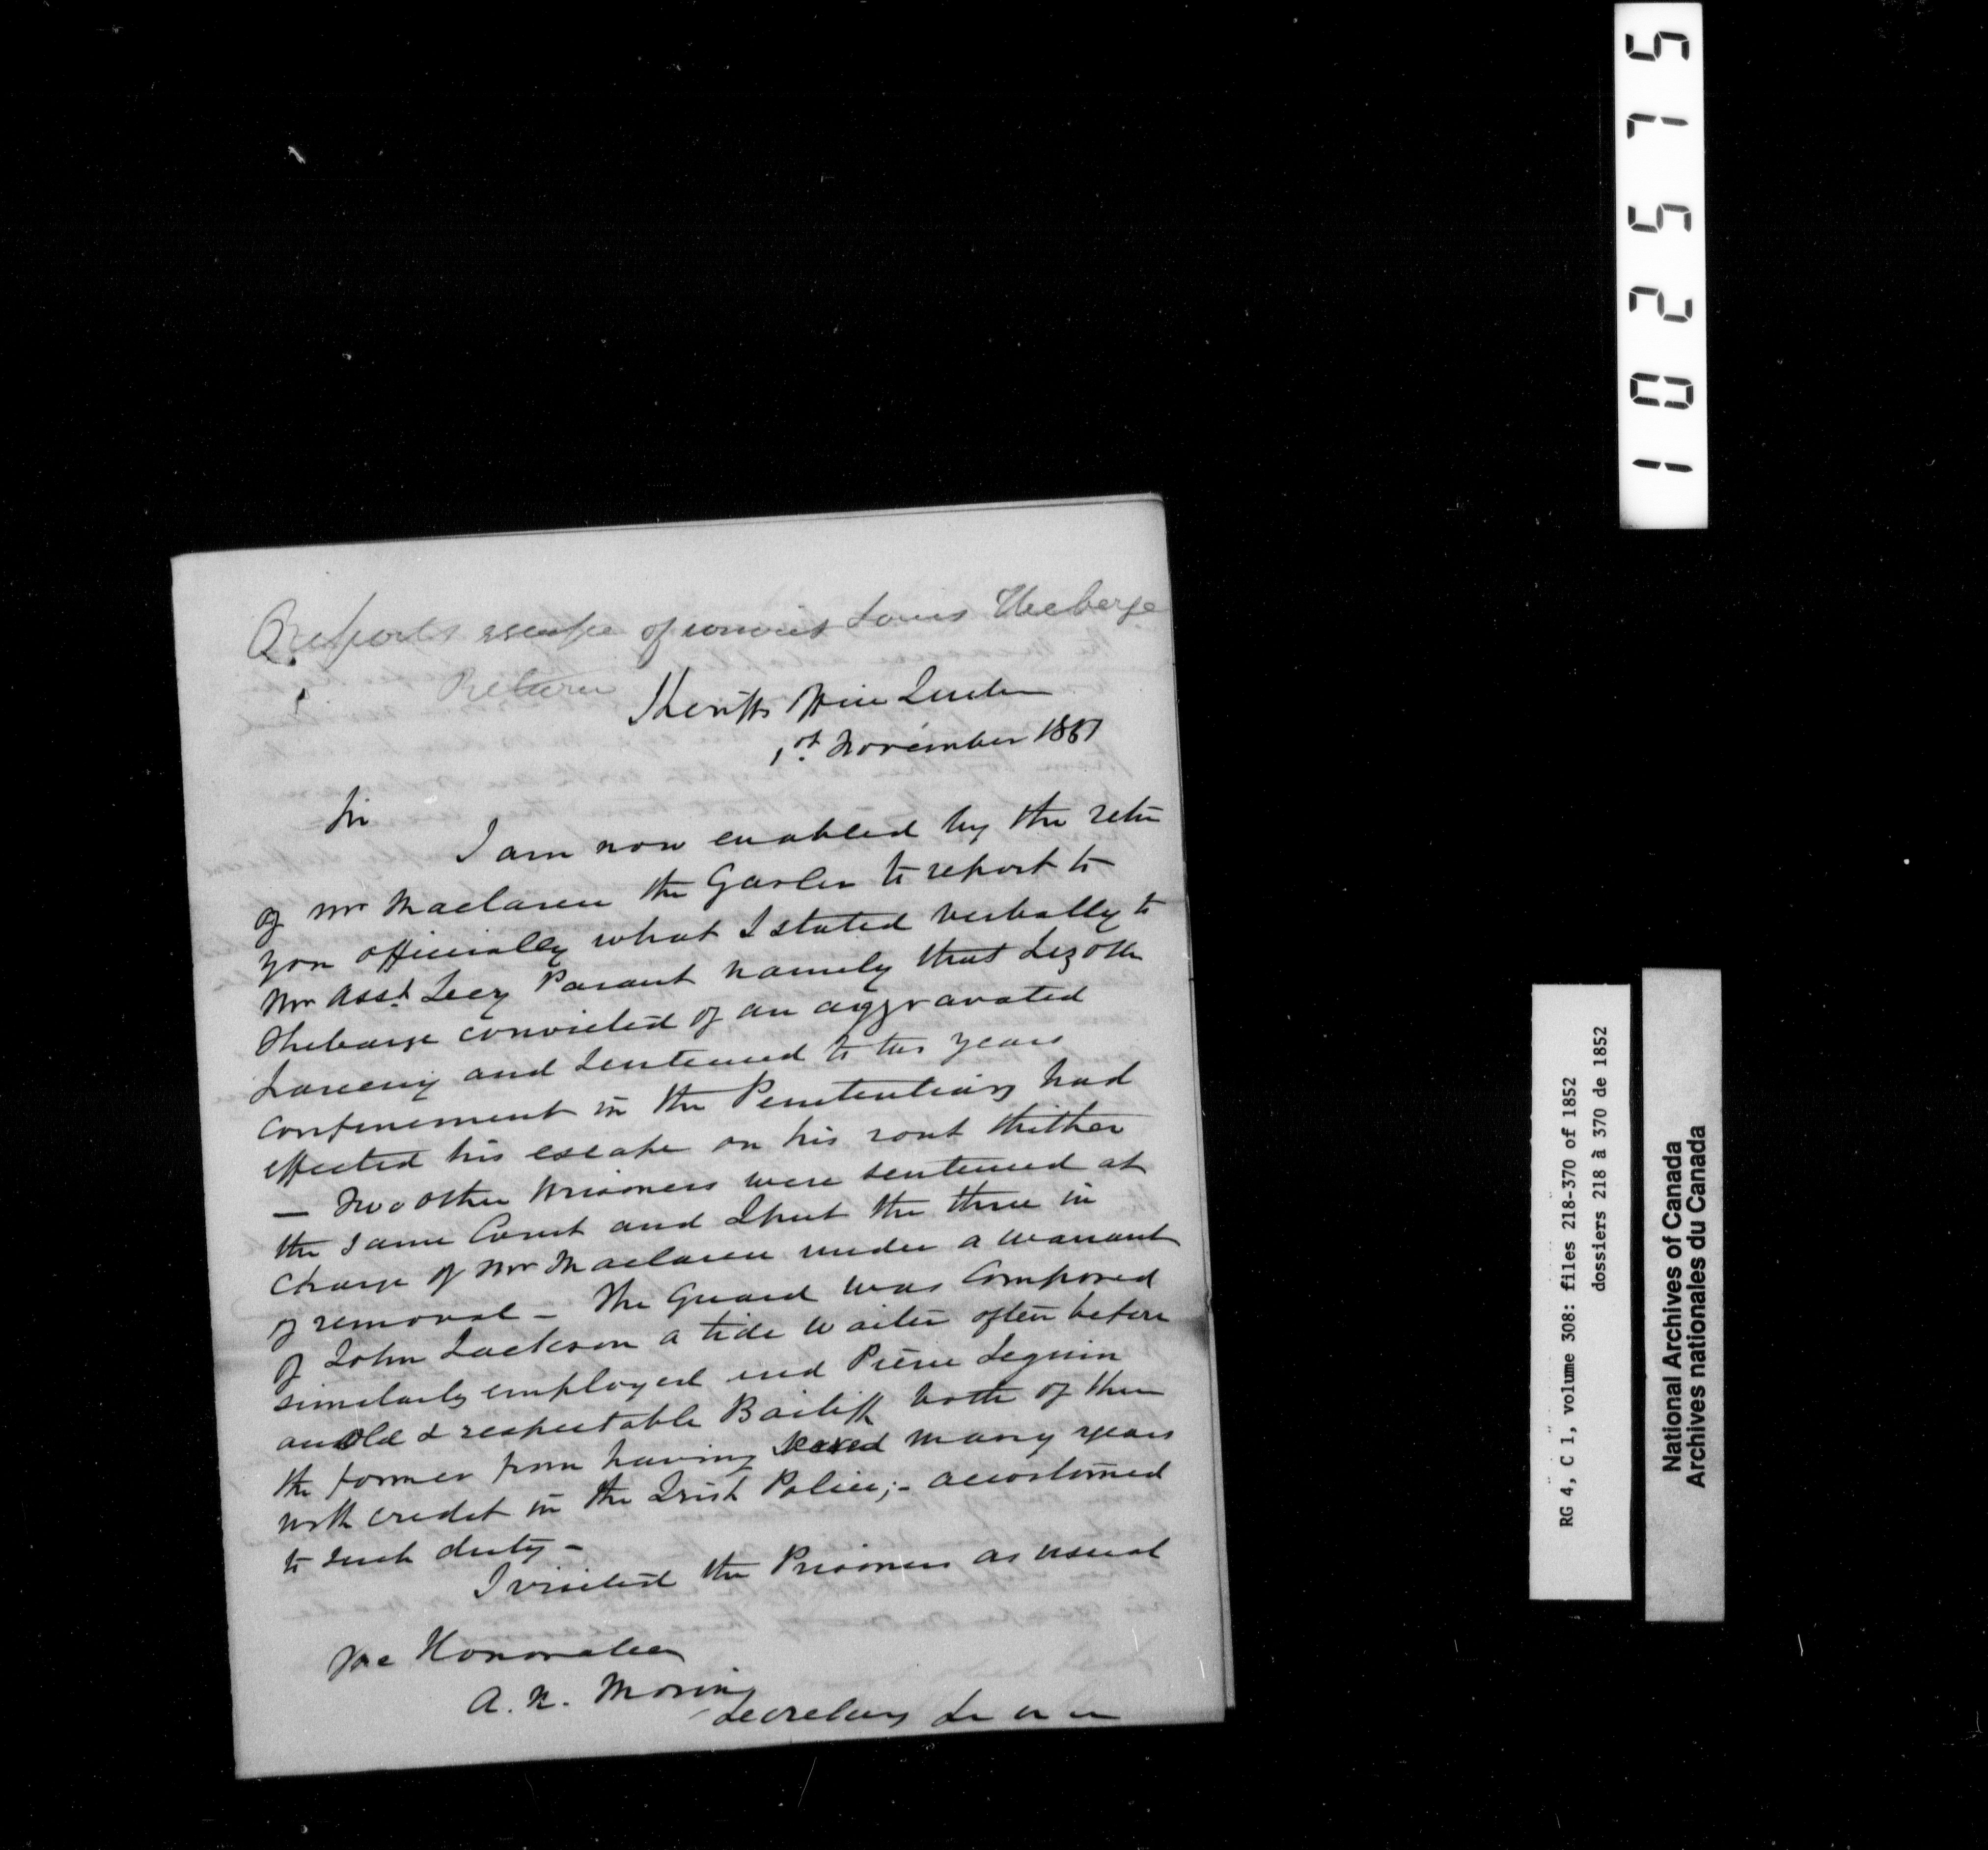 Reports escape of convict Louis Theberge
Return
Sheriffs Office Quebec
1st November 1851
Sir
I am now enabled by the retu
of Mr Maclaren the Gaoler to report to
you officially what I stated verbally to
Mr Asst Secy Parant namely that
Theberge convicted of an aggravated
Larceny and sentenced to two years
confinement in the Penitentiary had
effected his escape on his rout thither
— Two other Prisoners were sentenced at
the same Court and I put the three in
charge of Mr Maclaren under a warrant
of removal - The Guard was Composed
of John Jackson a tide waiter often before
similarly employed and Pierre Seguin
an old & respectable Bailiff both of them
the former from having served many years
with credit in the Irish Police;- accustomed
to such duty -
I visited the Prisoners as usual
The Honorable
A. N. Morin
Secretary
102575
RG 4, C 1, volume 308: files 218-370 of 1852
dossiers 218 à 370 de 1852
National Archives of Canada
Archives nationales du Canada